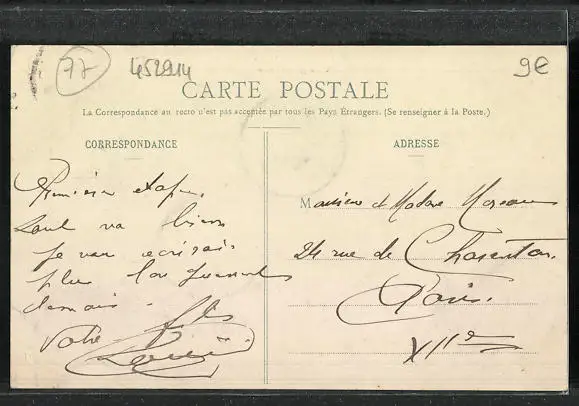 77
452914
9€
CARTE POSTALE
La Correspondance au recto n'est pas acceptée par tous les Pays Étrangers. (Se renseigner à la Poste.)
CORRESPONDANCE
Première étape.
tout va bien
je vous écrirai
plus longuement
demain.
Votre fils
ADRESSE
Monsieur et Madame Moreau
24 rue de Charenton.
Paris.
XIIe